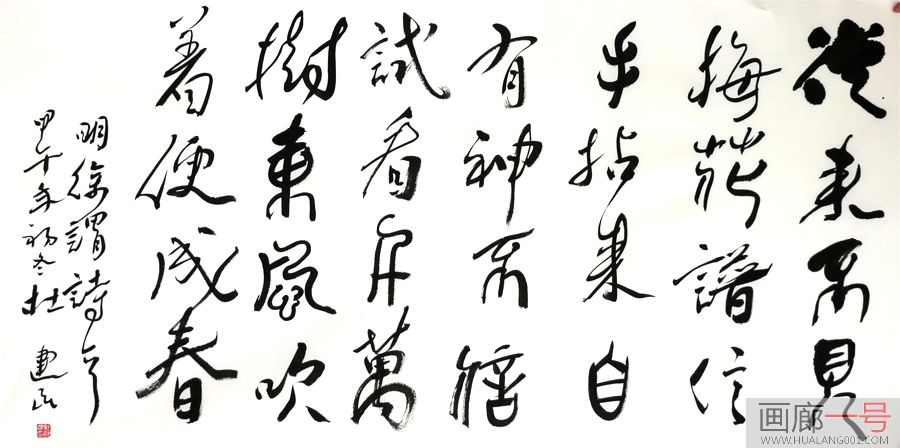 從来不見
梅花譜信
手拈来自
有神不信
試看千萬
樹東風吹
着便成春
明徐謂詩
甲午年初冬杜建
画廊一号
WWW.HUALANG001.COM